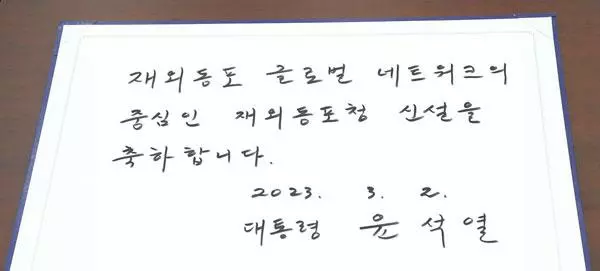 재외동포 글로벌 네트워크의
중심인 재외동포청 신설을
축하합니다.
2023. 3. 2.
대통령 윤석열